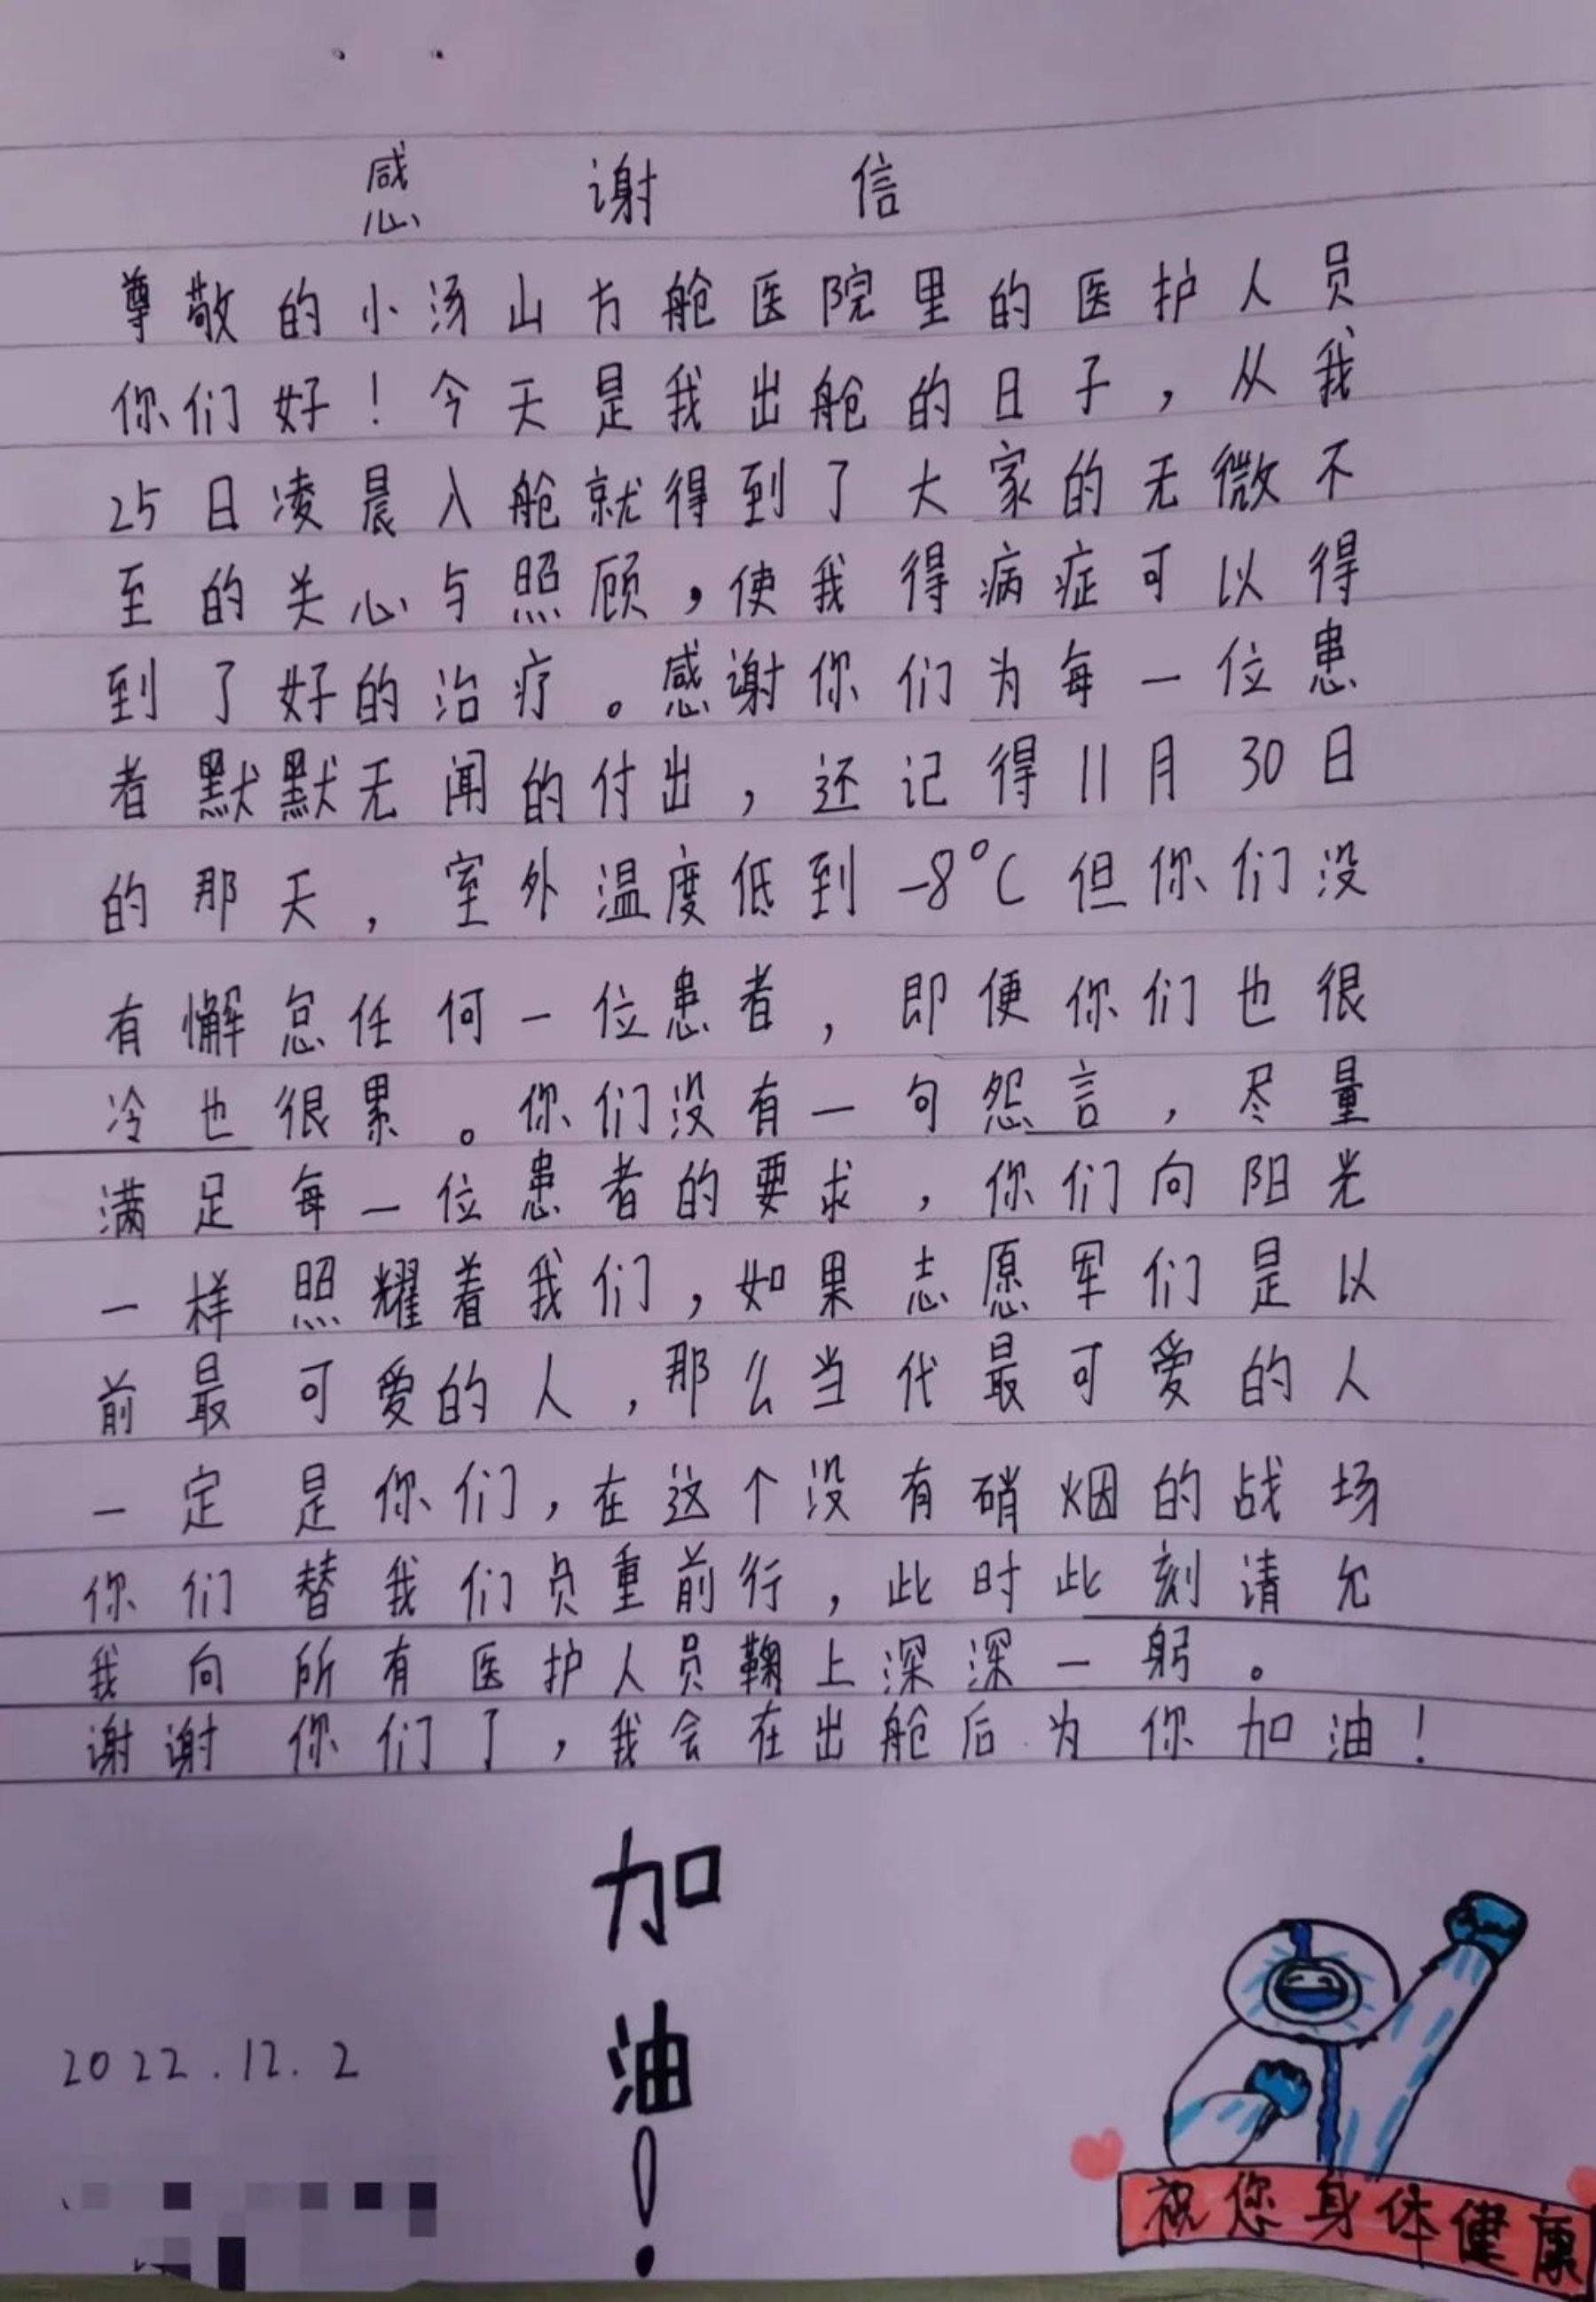 感谢信
尊敬的小汤山方舱医院里的医护人员
你们好！今天是我出舱的日子，从我
25日凌晨入舱就得到了大家的无微不
至的关心与照顾，使我得病症可以得
到了好的治疗。感谢你们为每一位患
者默默无闻的付出，还记得11月30日
的那天，室外温度低到-8°C但你们没
有懈怠任何一位患者，即便你们也很
冷也很累。你们没有一句怨言，尽量
满足每一位患者的要求，你们向阳光
一样照耀着我们，如果志愿军们是以
前最可爱的人，那么当代最可爱的人
一定是你们，在这个没有硝烟的战场
你们替我们员重前行，此时此刻请允
我向所有医护人员鞠上深深一躬。
谢谢你们了，我会在出舱后为你加油！
加
油
！
2022.12.2
祝您身体健康